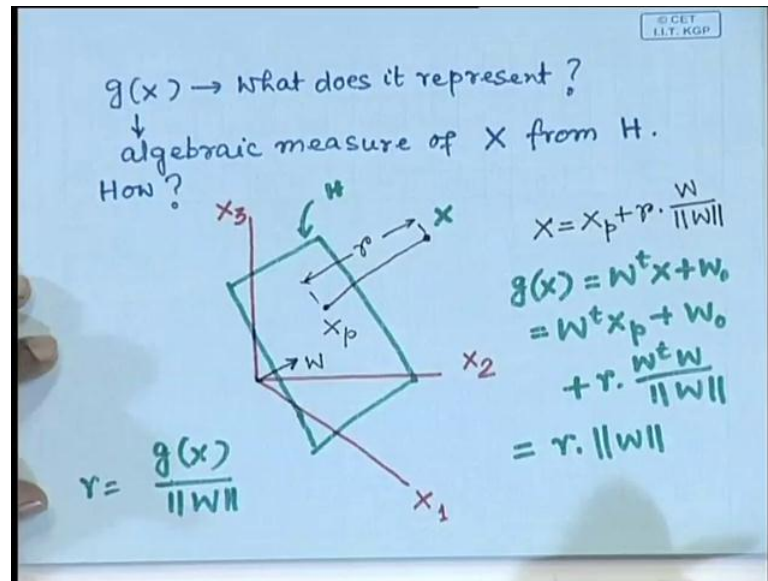 © CET
I.I.T. KGP
g(x) → What does it represent ?
↓
algebraic measure of X from H.
How ?
X3
H
r
X
Xp
W
X2
X1
X = Xp + r. W / ||W||
g(x) = W^t X + W₀
= W^t Xp + W₀
+ r. W^t W / ||W||
= r. ||W||
r = g(x) / ||W||